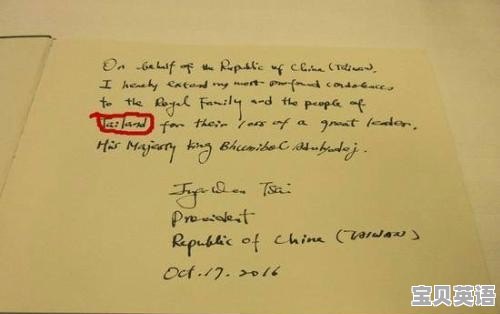 On behalf of the Republic of China (Taiwan),
I hereby extend my most profound condolences
to the Royal Family and the people of
Tailand for their loss of a great leader,
His Majesty King Bhumibol Adulyadej.
Ing-Wen Tsai
President
Republic of China (TAIWAN)
Oct. 17. 2016
宝贝英语